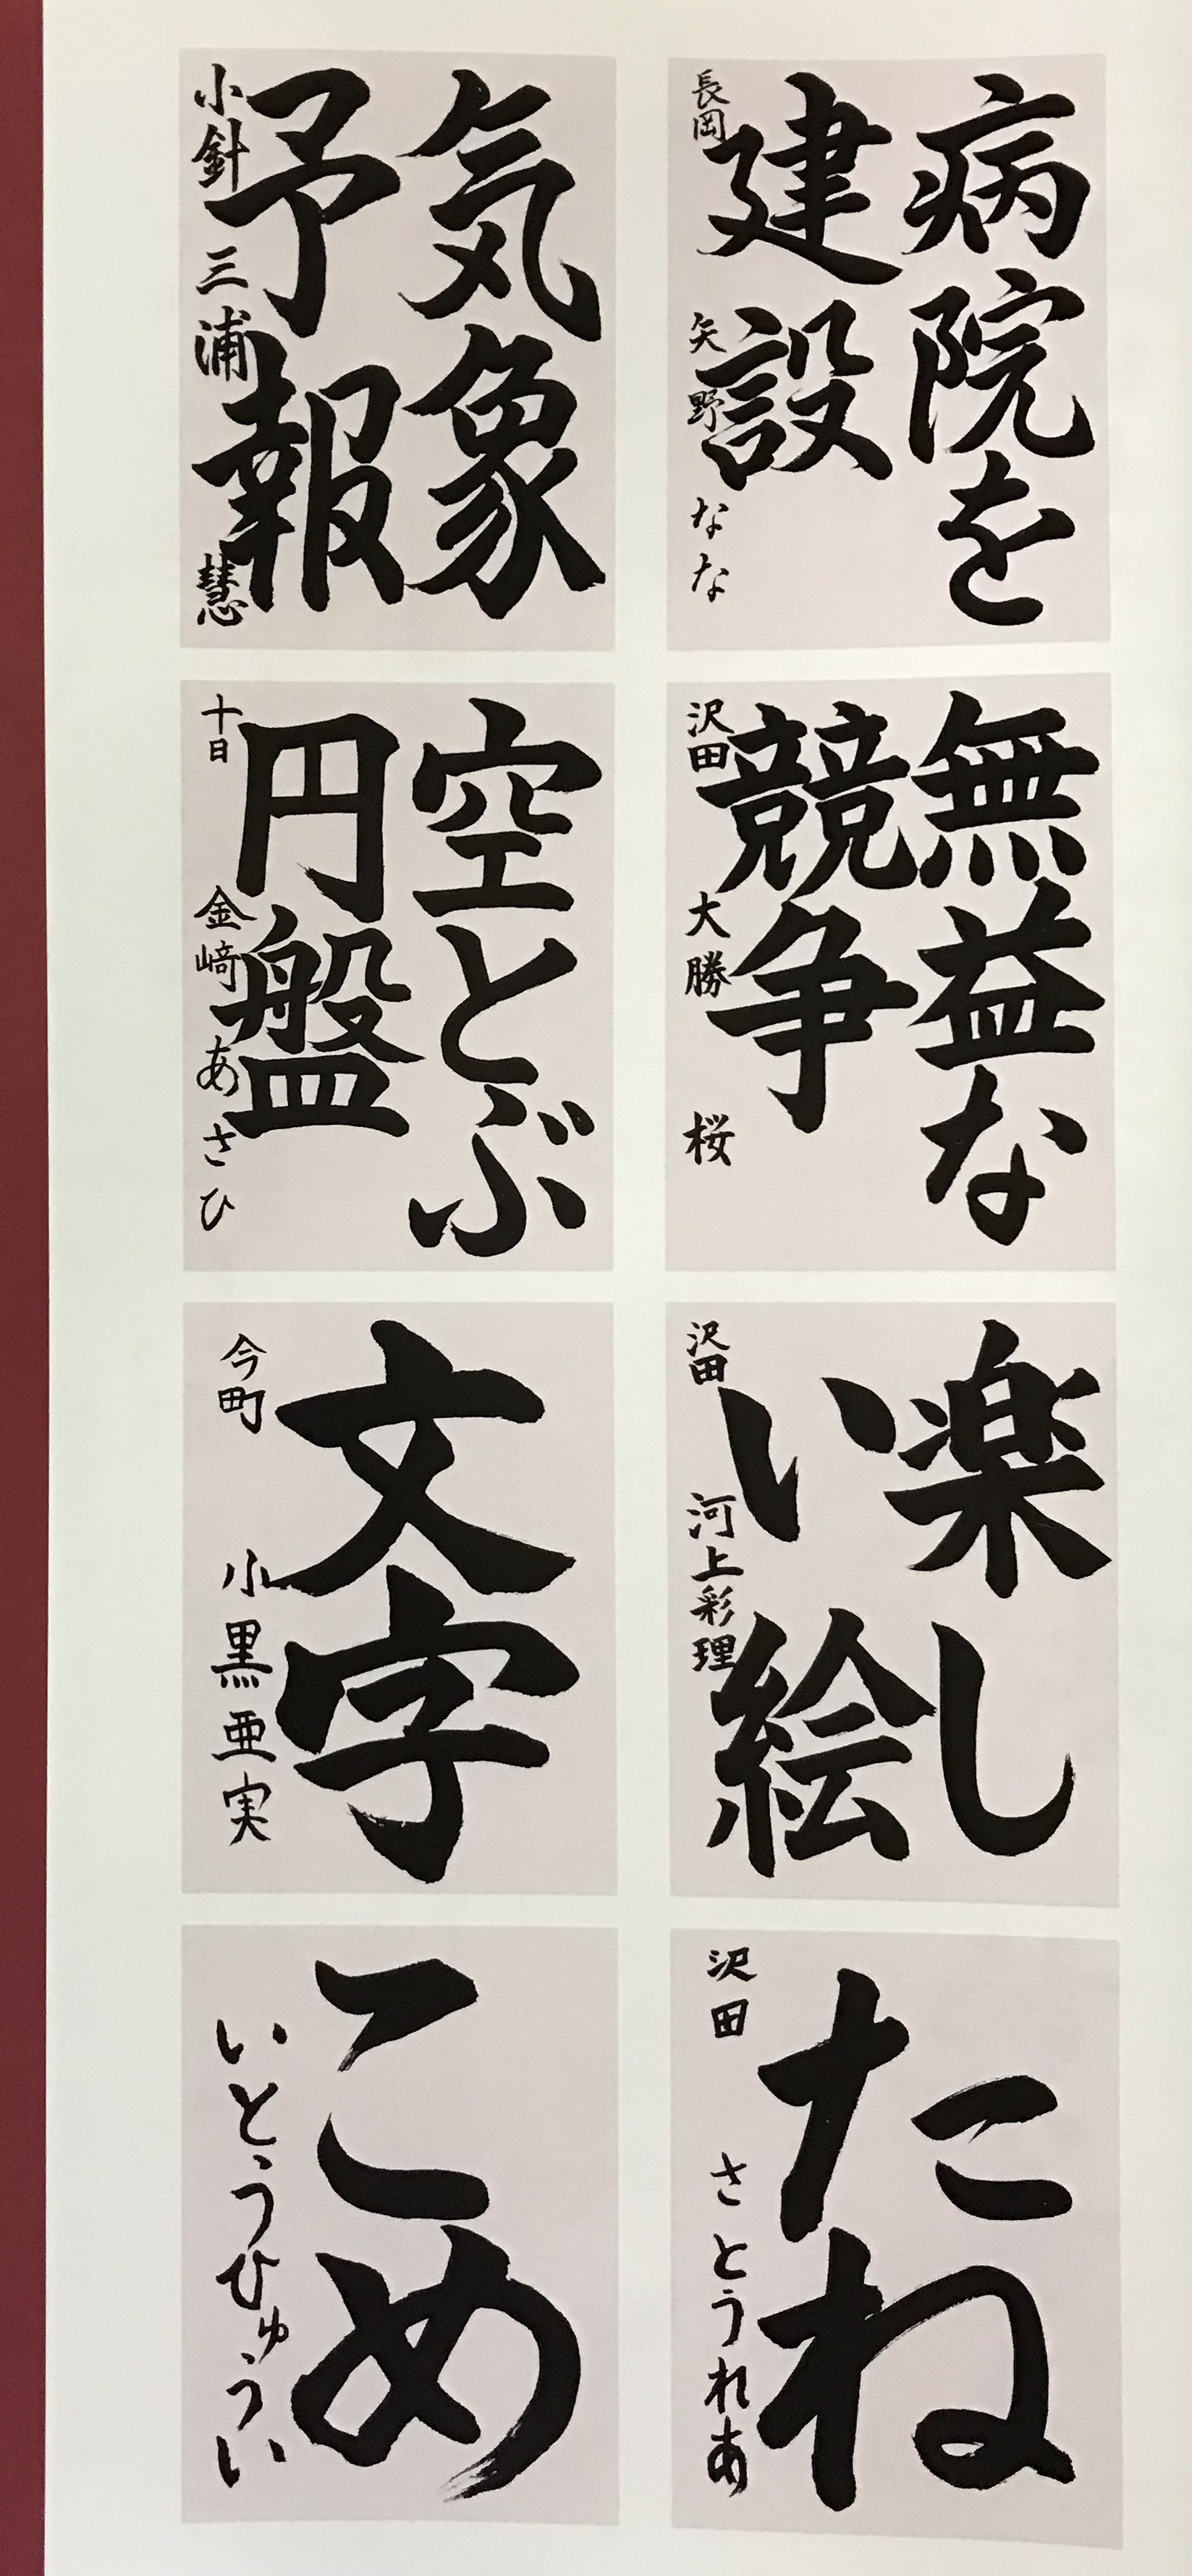 病院を
建設
長岡 矢野なな
気象
予報
小針 三浦慧
無益な
競争
沢田 大勝桜
空とぶ
円盤
十日 金﨑あさひ
楽し
い絵
沢田 河上彩理
文字
今町 小黒亜実
たね
沢田 さとうれあ
こめ
いとうひゅうい